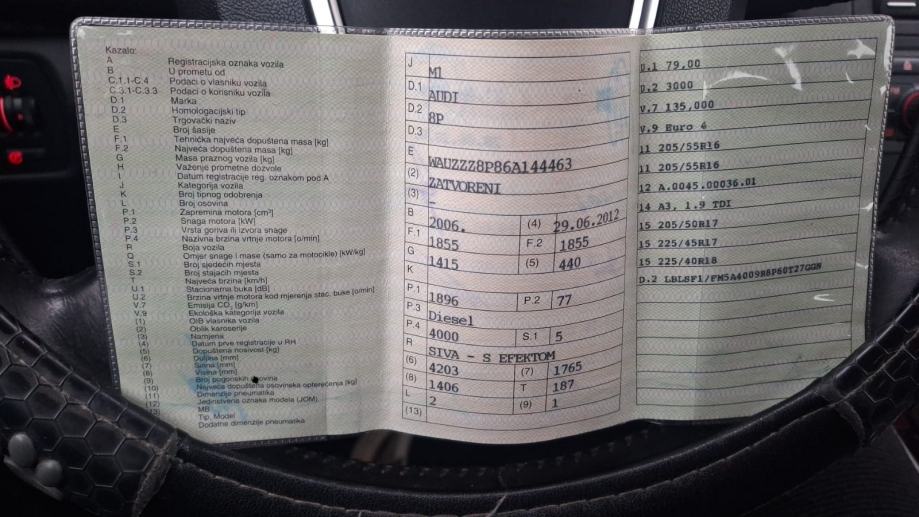 Kazalo:
A Registracijska oznaka vozila
B U prometu od
C.1.1-C.4 Podaci o vlasniku vozila
C.3.1-C.3.3 Podaci o korisniku vozila
D.1 Marka
D.2 Homologacijski tip
D.3 Trgovački naziv
E Broj šasije
F.1 Tehnička najveća dopuštena masa [kg]
F.2 Najveća dopuštena masa [kg]
G Masa praznog vozila [kg]
H Važenje prometne dozvole
I Datum registracije reg. oznakom pod A
J Kategorija vozila
K Broj tipnog odobrenja
L Broj osovina
P.1 Zapremina motora [cm³]
P.2 Snaga motora [kW]
P.3 Vrsta goriva ili izvora snage
P.4 Nazivna brzina vrtnje motora [o/min]
R Boja vozila
Q Omjer snage i mase (samo za motocikle) [kW/kg]
S.1 Broj sjedećih mjesta
S.2 Broj stajaćih mjesta
T Najveća brzina [km/h]
U.1 Stacionarna buka [dB]
U.2 Brzina vrtnje motora kod mjerenja stac. buke [o/min]
V.7 Emisija CO₂ [g/km]
V.9 Ekološka kategorija vozila
(1) OIB vlasnika vozila
(2) Oblik karoserije
(3) Namjena
(4) Datum prve registracije u RH
(5) Dopuštena nosivost [kg]
(6) Duljina [mm]
(7) Širina [mm]
(8) Visina [mm]
(9) Broj pogonskih osovina
(10) Najveća dopuštena osovinska opterećenja [kg]
(11) Dimenzije pneumatika
(12) Jedinstvena oznaka modela (JOM)
MB
Tip, Model
Dodatne dimenzije pneumatika
J M1
D.1 AUDI
D.2 8P
D.3
E WAUZZZ8P86A144463
(2) ZATVORENI
(3) -
B 2006. (4) 29.06.2012
F.1 1855 F.2 1855
G 1415 (5) 440
K
P.1 1896 P.2 77
P.3 Diesel
P.4 4000 S.1 5
R SIVA - S EFEKTOM
(6) 4203 (7) 1765
(8) 1406 T 187
L 2 (9) 1
(13)
U.1 79,00
U.2 3000
V.7 135,000
V.9 Euro 4
11 205/55R16
11 205/55R16
12 A.0045.00036.01
14 A3, 1.9 TDI
15 205/50R17
15 225/45R17
15 225/40R18